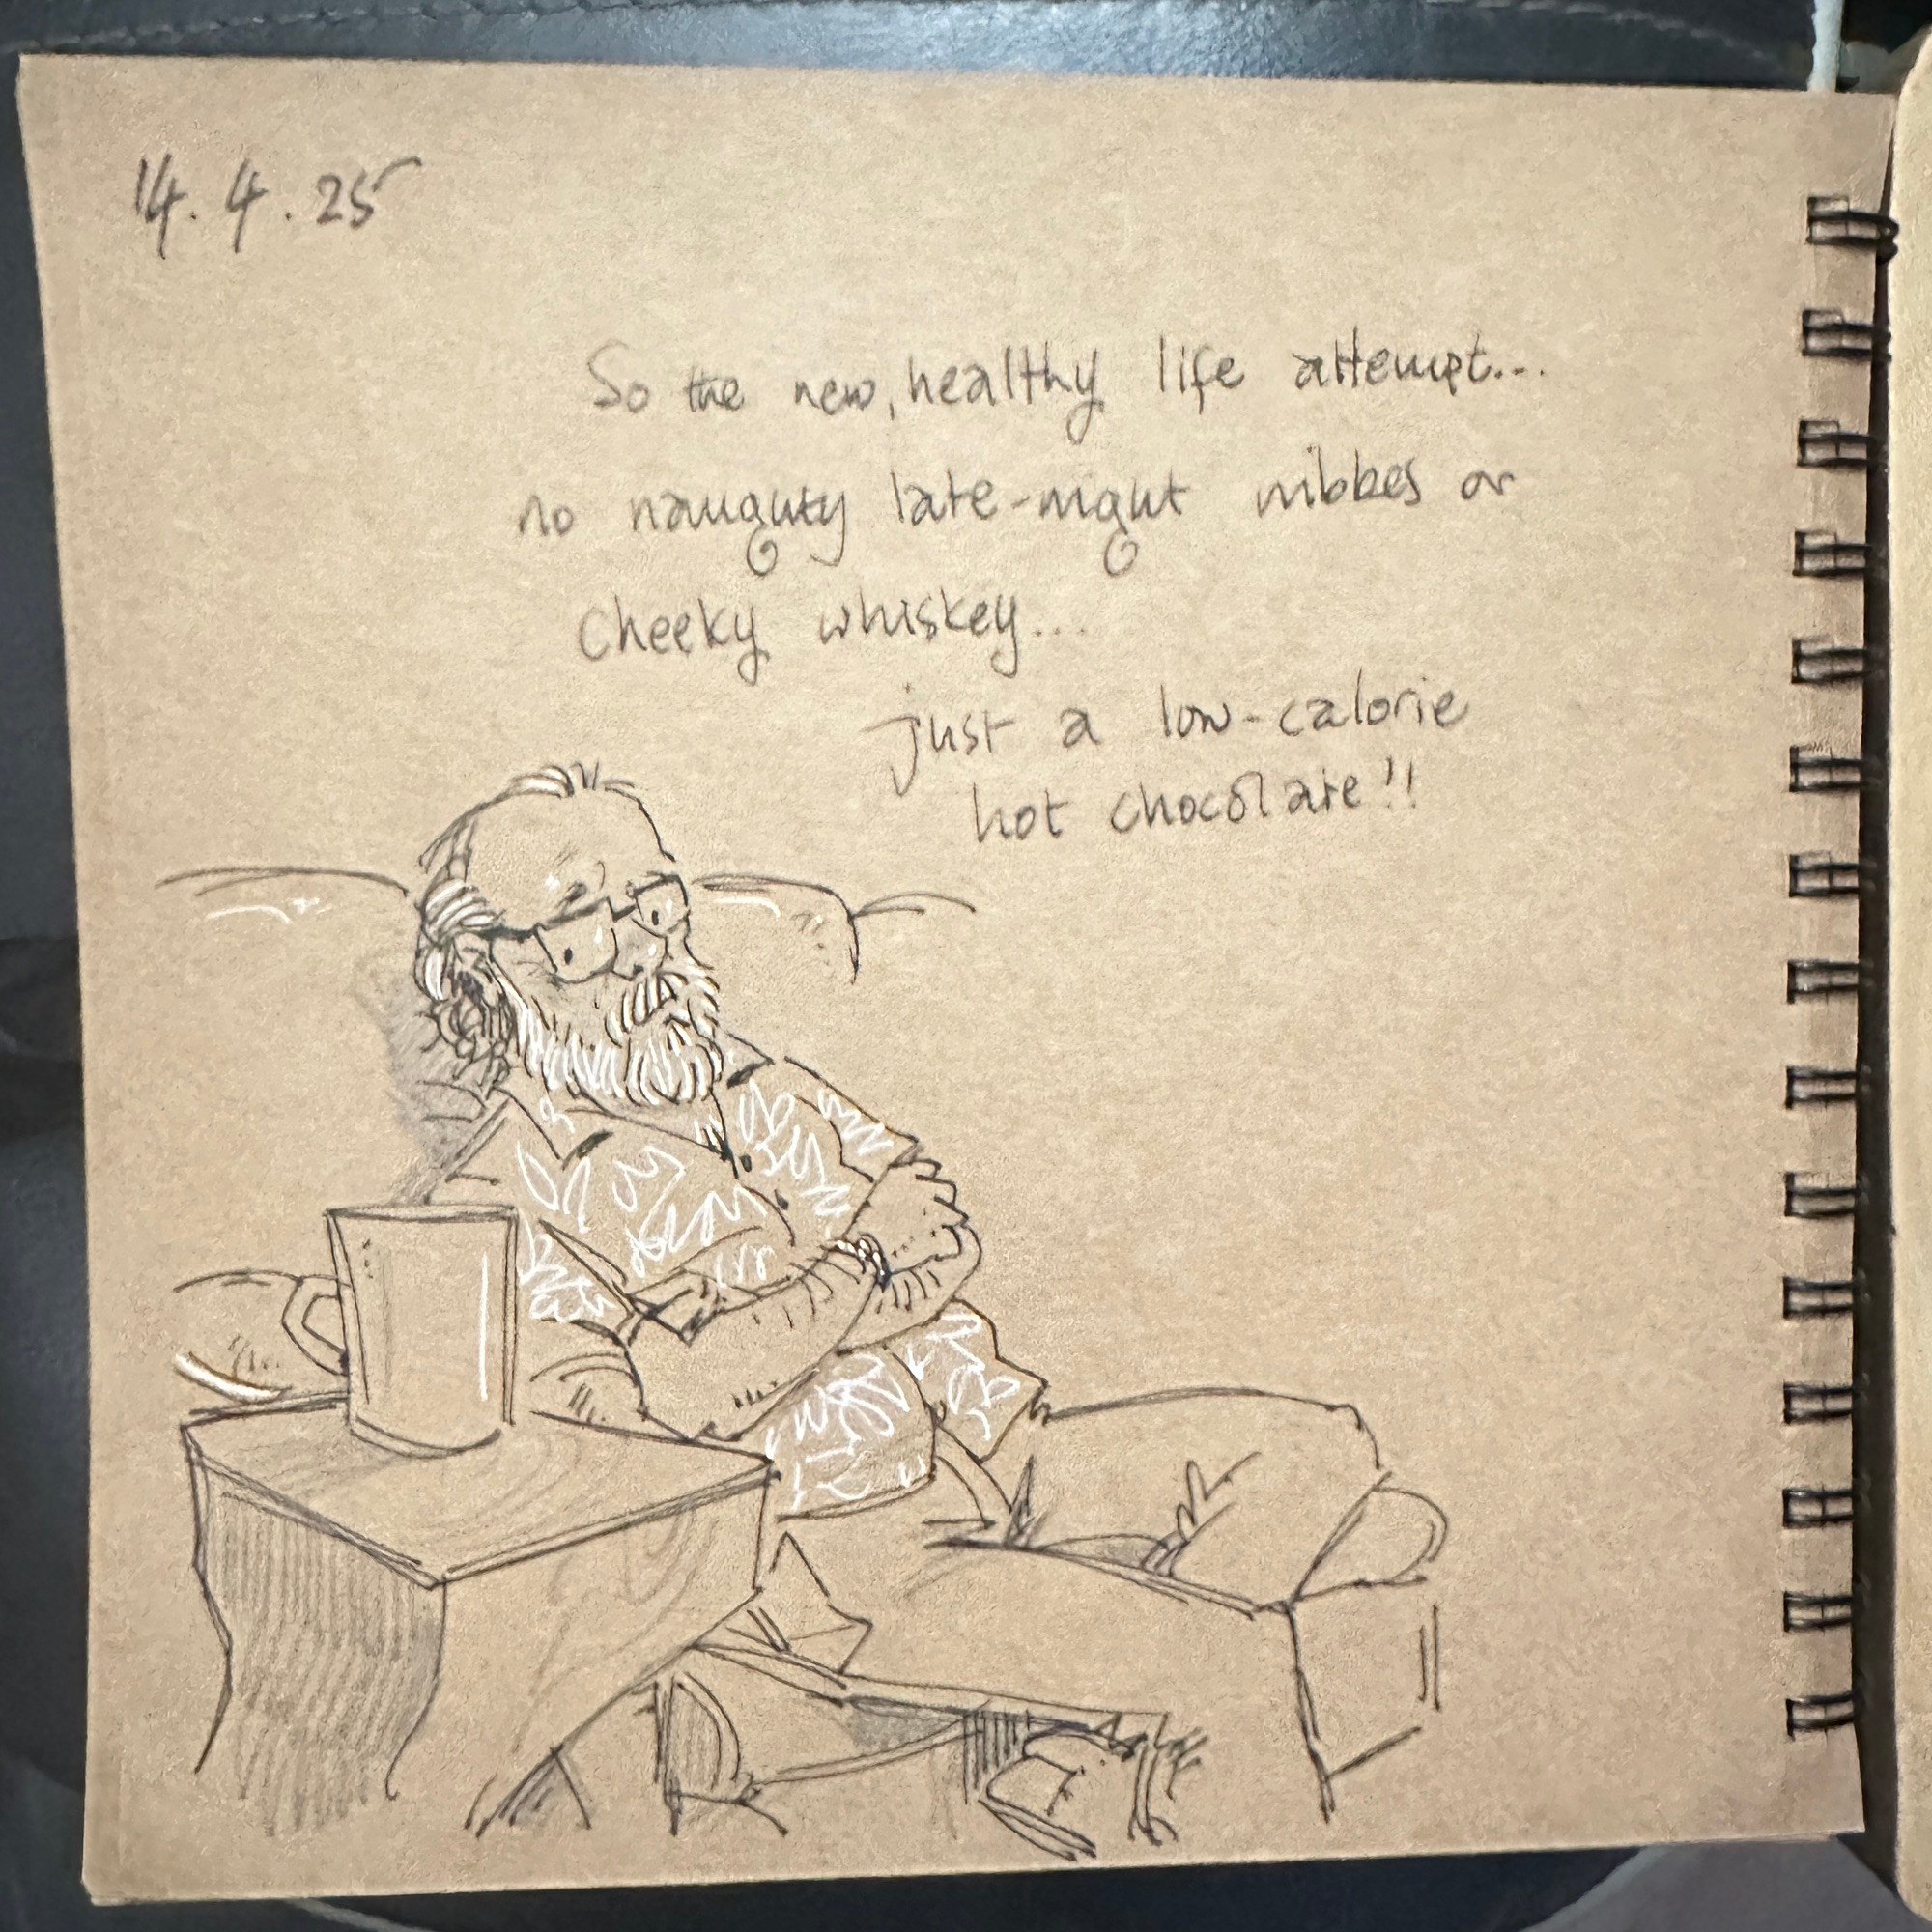 14.4.25
So the new, healthy life attempt...
no naughty late-night nibbles or
cheeky whiskey...
just a low-calorie
hot chocolate!!